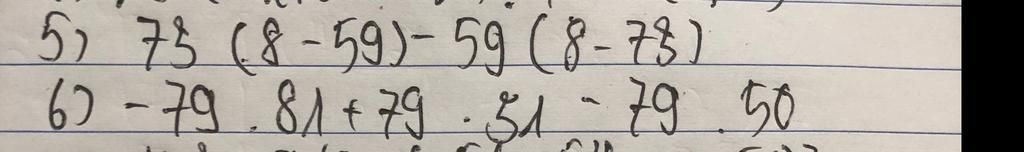 5) 75 (8 - 59) - 59 (8 - 75)
6) - 79 . 81 + 79 . 51 - 79 . 50